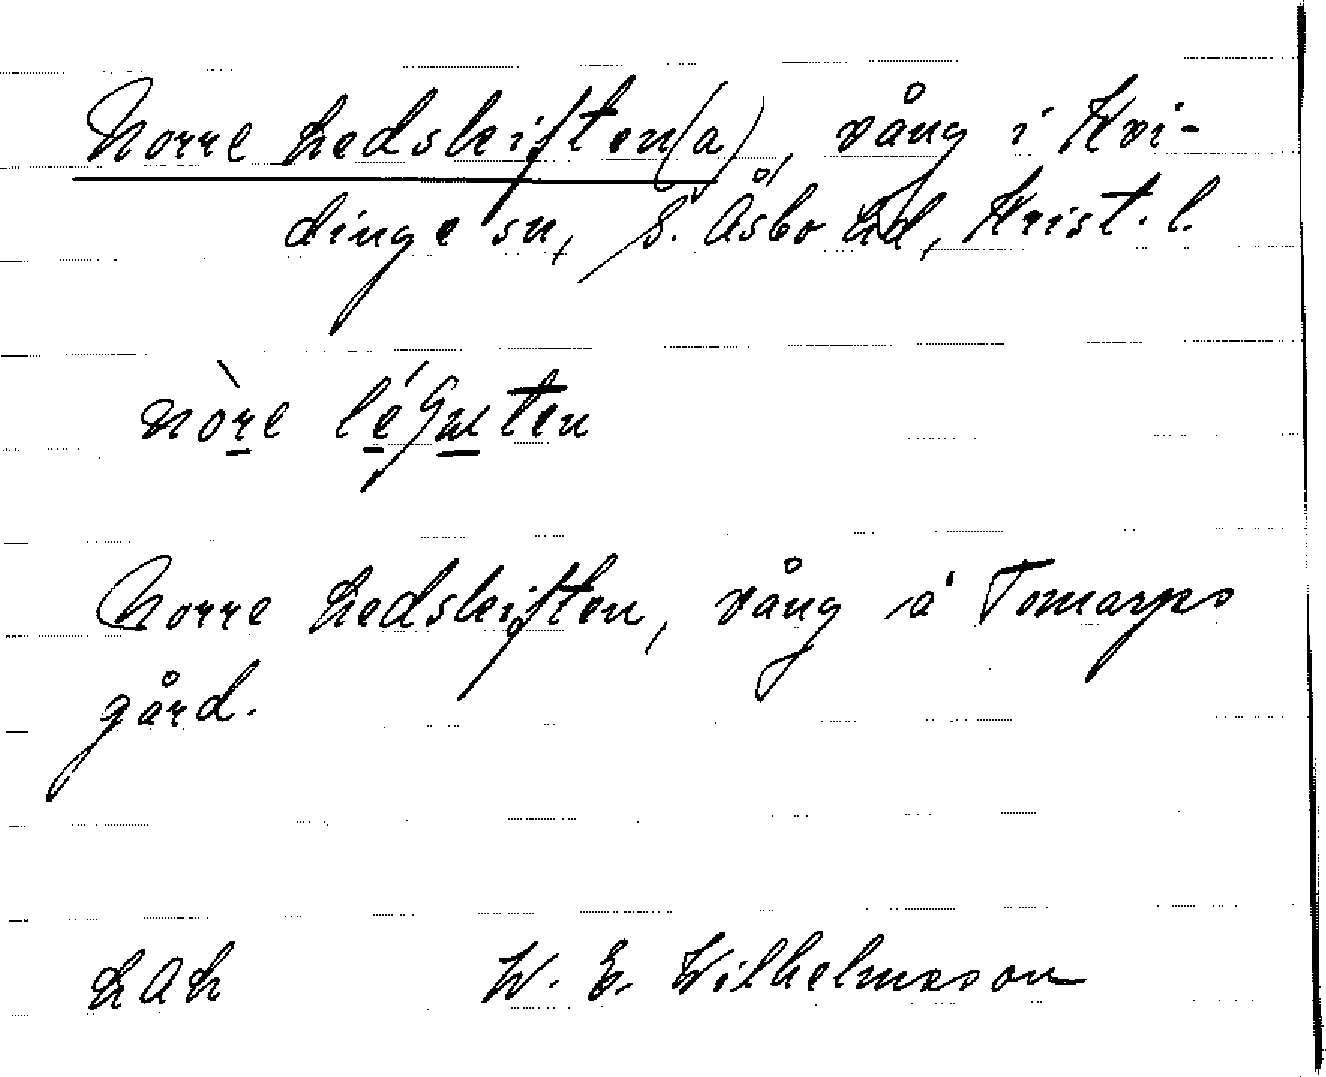 Norre Ledskiften(a), vång i Kvi-
dinge sn, S. Åsbo hd, Krist. l.
nòre
Norre Ledskiften, vång å Tomarps
gård.
LAL W. E. Wilhelmsson